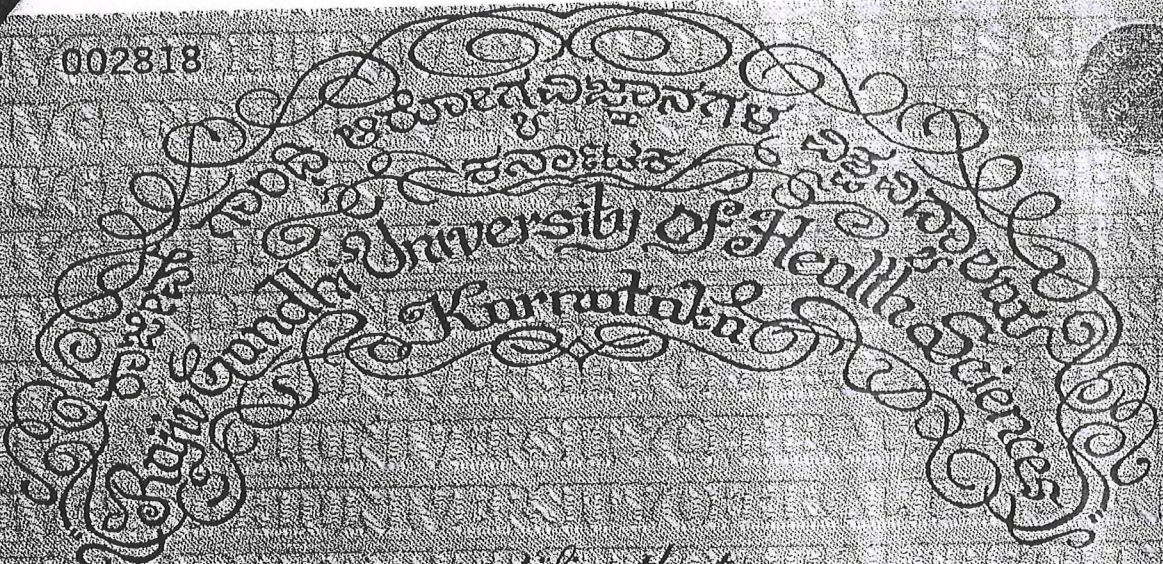 002818
ರಾಜೀವ್ ಗಾಂಧಿ ಆರೋಗ್ಯ ವಿಜ್ಞಾನಗಳ ವಿಶ್ವವಿದ್ಯಾಲಯ
ಕರ್ನಾಟಕ
Rajiv Gandhi University Of Health Sciences
Karnataka